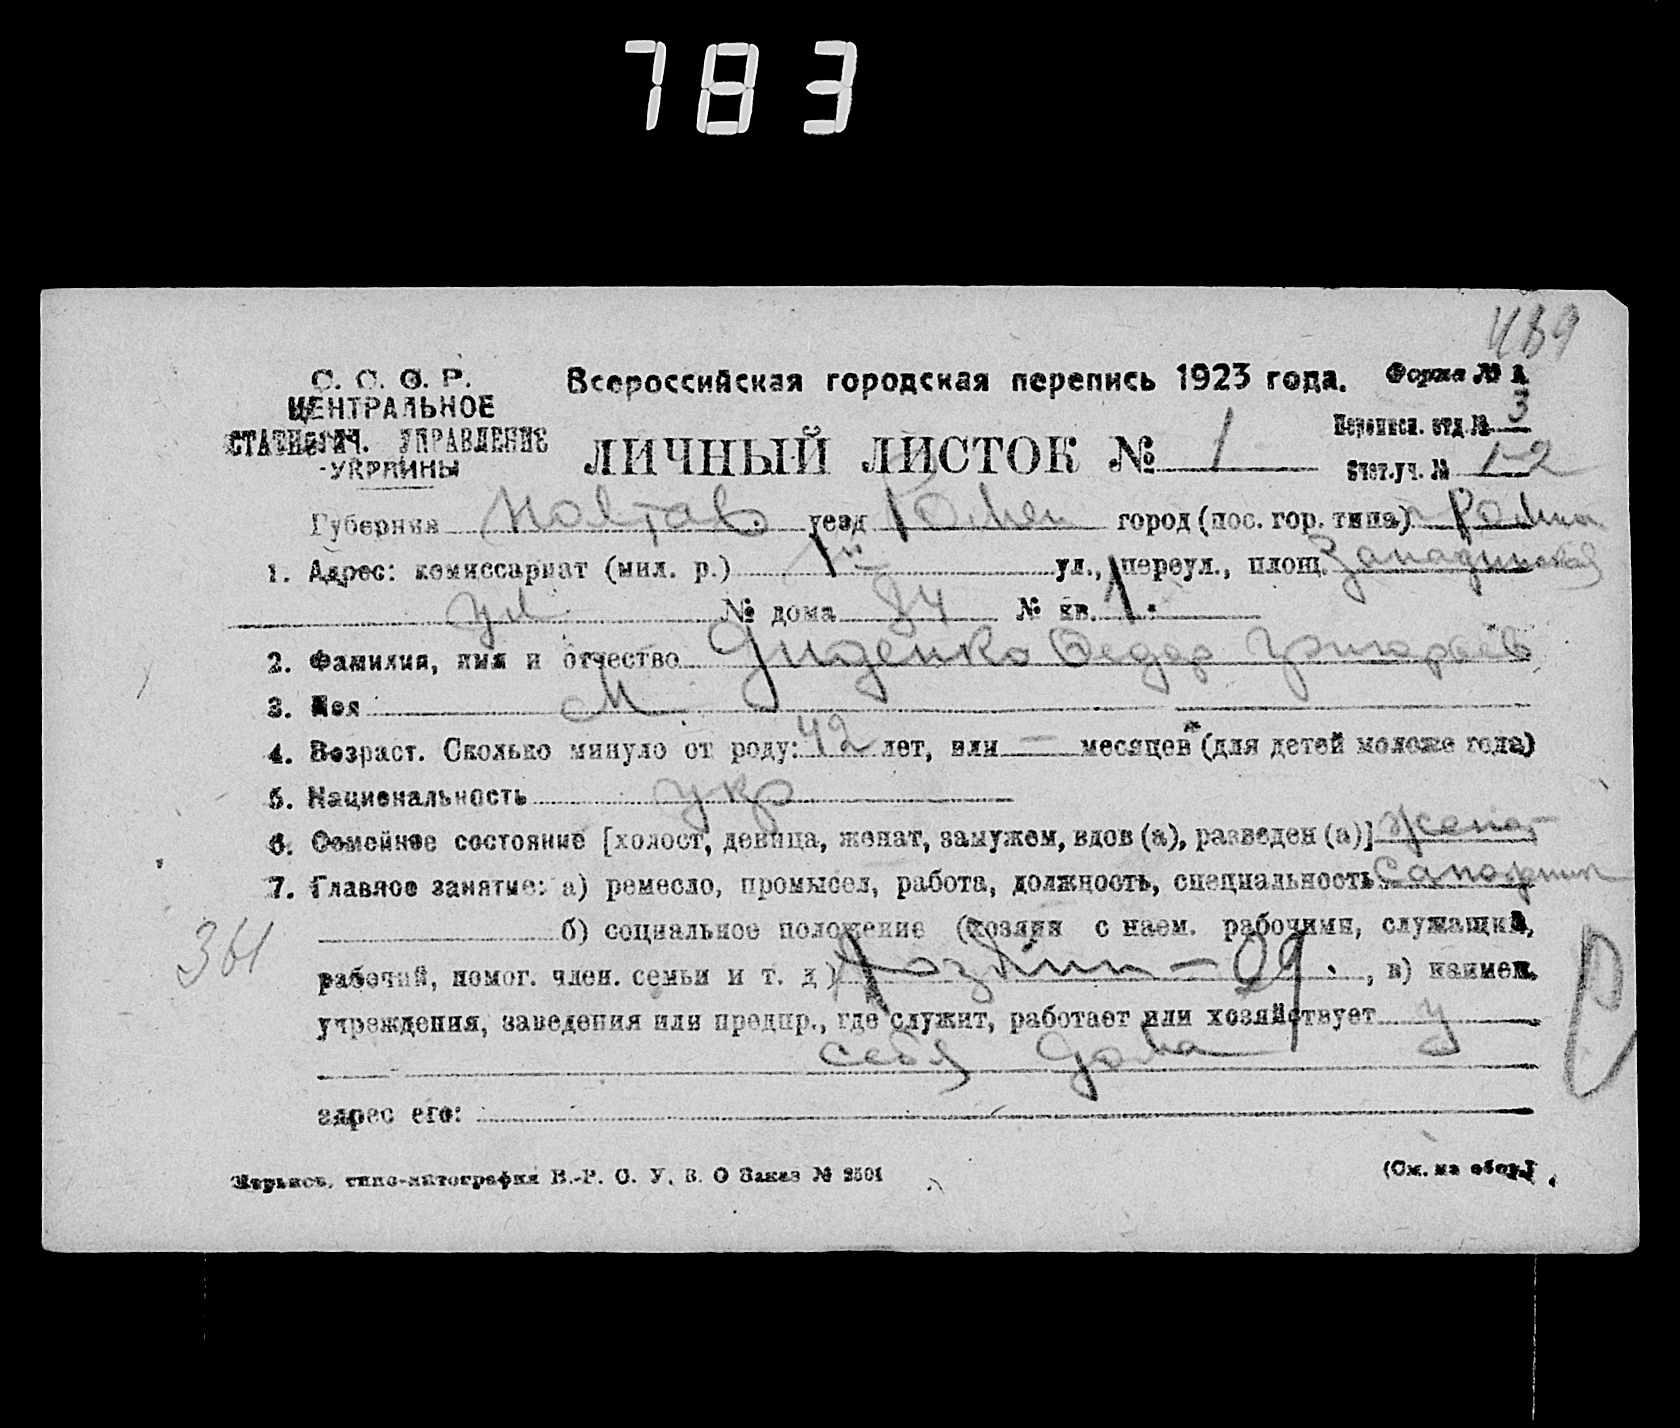 783
489
С. С. С. Р.
ЦЕНТРАЛЬНОЕ
СТАТИСТИЧ. УПРАВЛЕНИЕ
УКРАИНЫ
Всероссийская городская перепись 1923 года.
Форма № 1
ЛИЧНЫЙ ЛИСТОК № 1
Переписн. отд. № 3
Счет. уч. № 1-2
Губерния Полтав уезд Ромен город (пос. гор. типа) Ромны
1. Адрес: комиссариат (мил. р.) 1й ул., переул., площ.
ул № дома 84 № кв. 1.
2. Фамилия, имя и отчество Диденко Федор Григорьев
3. Пол М
4. Возраст. Сколько минуло от роду: 42 лет, или — месяцев (для детей моложе года)
5. Национальность укр
6. Семейное состояние [холост, девица, женат, замужем, вдов (а), разведен (а)] женат
7. Главное занятие: а) ремесло, промысел, работа, должность, специальность сапожник
б) социальное положение (хозяин с наем. рабочими, служащий,
361
рабочий, помог. член. семьи и т. д.) хозяин — од. , в) наимен.
учреждения, заведения или предпр., где служит, работает или хозяйствует у
себя дома
адрес его:
Харьков, типо-литография В.-Р. С. У. В. О Заказ № 2501
(См. на обор.)